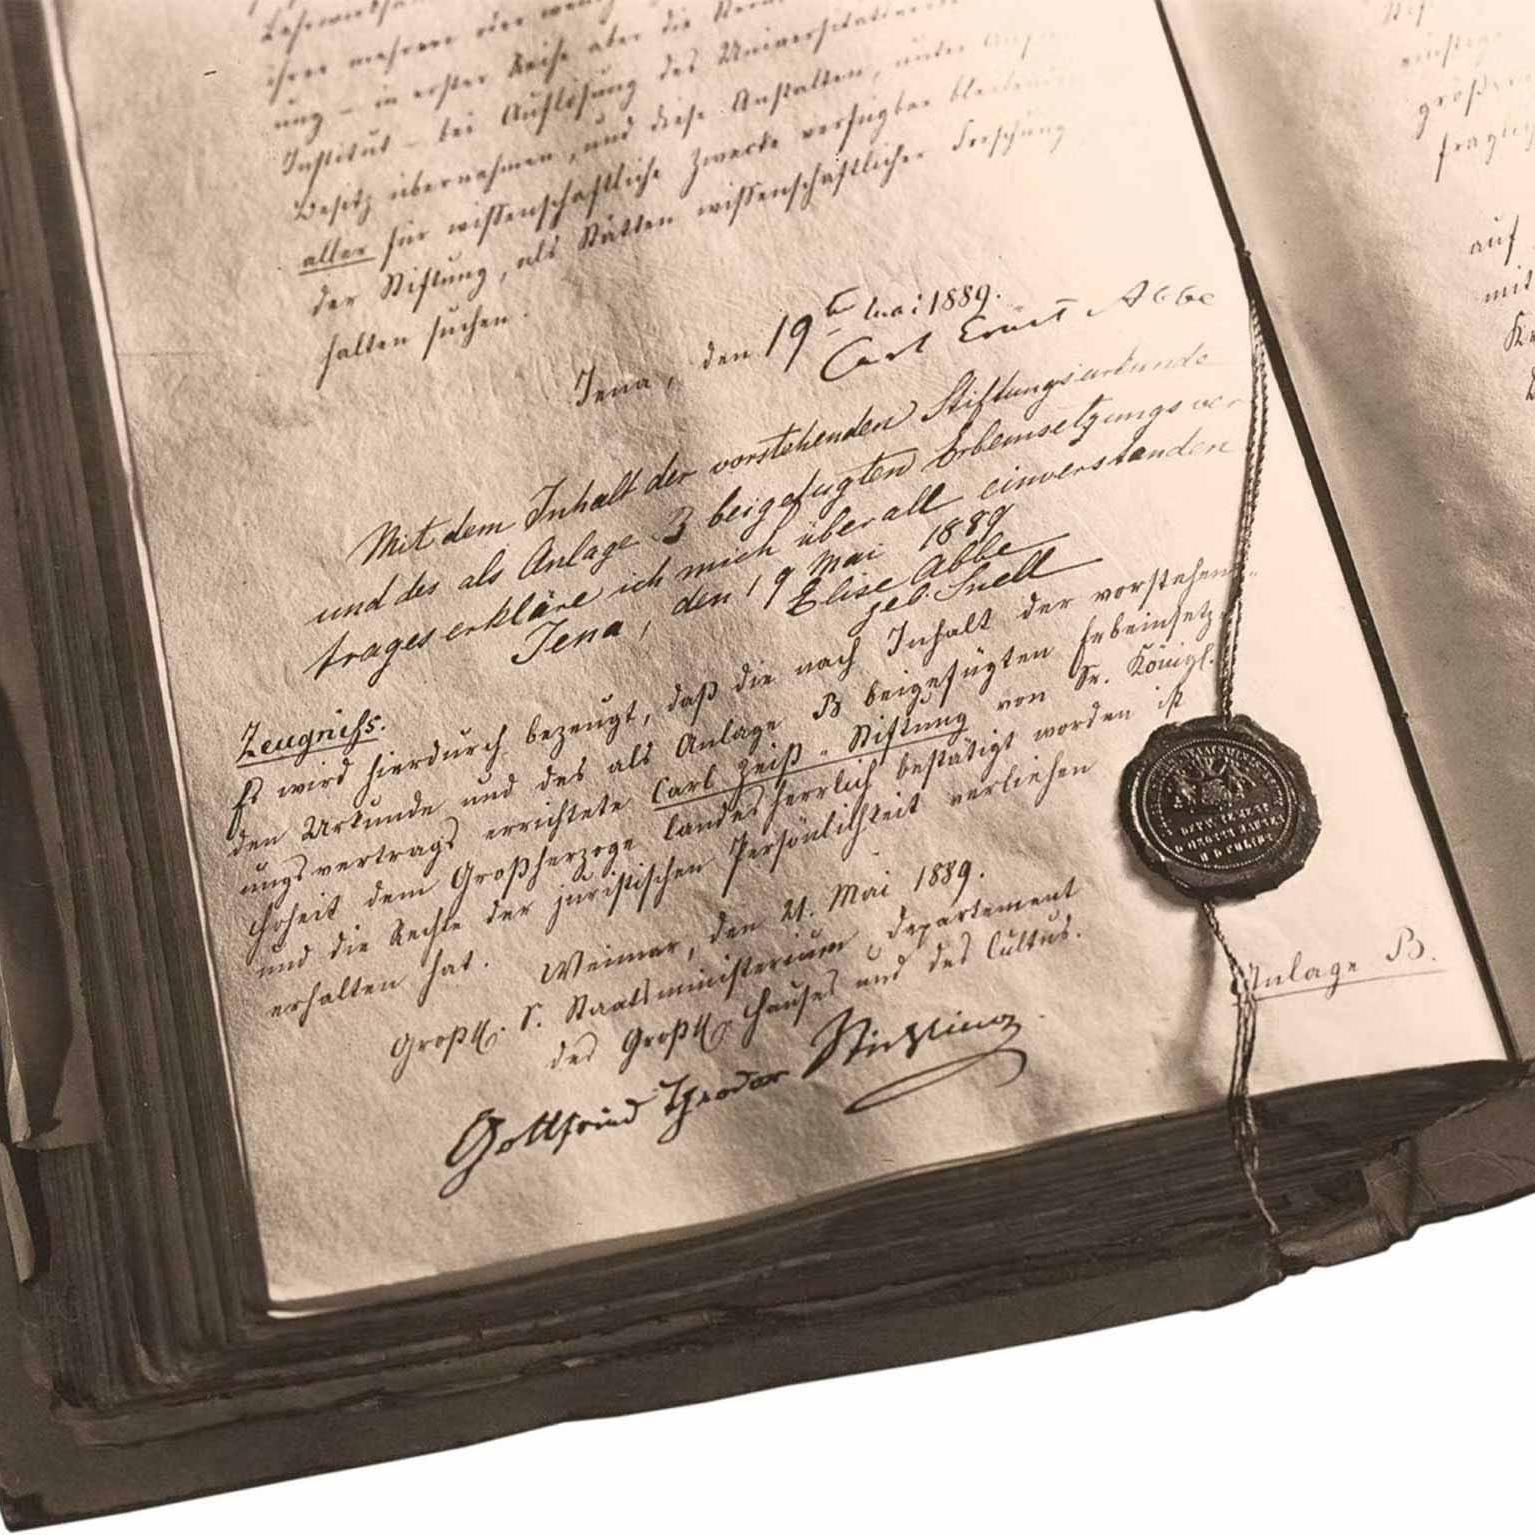 ihrer mehrere oder
ung – in erster Reihe aber die
Institut – bei Auflösung des Universitäts
Besitz übernehmen, und diese Anstalten, unter
aller für wissenschaftliche Zwecke verfügbar bleibenden
der Stiftung, als Stätten wissenschaftlicher Forschung
halten suchen.
Jena, den 19 Mai 1889.
Carl Ernst Abbe
Mit dem Inhalt der vorstehenden Stiftungsurkunde
und des als Anlage B beigefügten Erbeinsetzungsver
trages erkläre ich mich überall einverstanden
Jena, den 19 Mai 1889
Elise Abbe
geb. Snell
Zeugniss.
Es wird hierdurch bezeugt, daß die nach Inhalt der vorstehen-
den Urkunde und des als Anlage B beigefügten Erbeinsetz-
ungsvertrags errichtete Carl Zeiß-Stiftung von Sr. Königl.
Hoheit dem Großherzoge landesherrlich bestätigt worden ist
und die Rechte der juristischen Persönlichkeit verliehen
erhalten hat.
Weimar, den 21. Mai 1889.
Großh. S. Staatsministerium, Departement
des Großh. Hauses und des Cultus.
Gottfried Theodor Stichling
Anlage B.
auf
mit